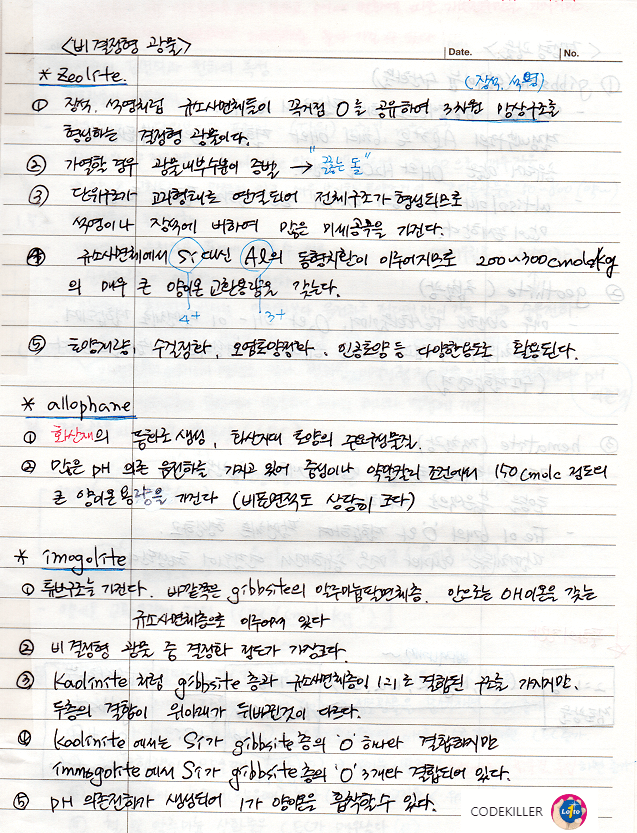 <비결정형 광물>
Date. No.
* Zeolite.
(장석, 석영)
① 장석, 석영처럼 규소사면체들이 꼭지점 O를 공유하여 3차원 망상구조를
형성하는 결정형 광물이다.
② 가열할 경우 광물내부수분이 증발 → "끓는 돌"
③ 단위구조가 고리형태로 연결되어 전체구조가 형성되므로
석영이나 장석에 비하여 많은 미세공극을 가진다.
④ 규소사면체에서 Si 대신 Al의 동형치환이 이루어지므로 200~300cmolc/kg
의 매우 큰 양이온 교환용량을 갖는다.
4+ 3+
⑤ 토양개량, 수질정화, 오염토양정화, 인공토양 등 다양한용도로 활용된다.
* allophane
① 화산재의 풍화로 생성, 화산지대 토양의 주요구성물질.
② 많은 pH 의존 음전하를 가지고 있어 중성이나 약알칼리 조건에서 150cmolc 정도의
큰 양이온용량을 가진다 (비표면적도 상당히 크다)
* imogolite
① 튜브구조를 가진다. 바깥쪽은 gibbsite의 알루미늄팔면체층, 안으로는 OH이온을 갖는
규소사면체층으로 이루어져 있다
② 비결정형 광물 중 결정화 정도가 가장크다.
③ Kaolinite 처럼 gibbsite 층과 규소사면체층이 1:1로 결합된 구조를 가지지만,
두층의 결합이 위아래가 뒤바뀐것이 다르다.
④ Kaolinite 에서는 Si가 gibbsite 층의 'O' 하나와 결합하지만
immogolite 에서 Si가 gibbsite 층의 'O' 3개와 결합되어 있다.
⑤ pH 의존전하가 생성되어 1가 양이온을 흡착할 수 있다.
CODEKILLER